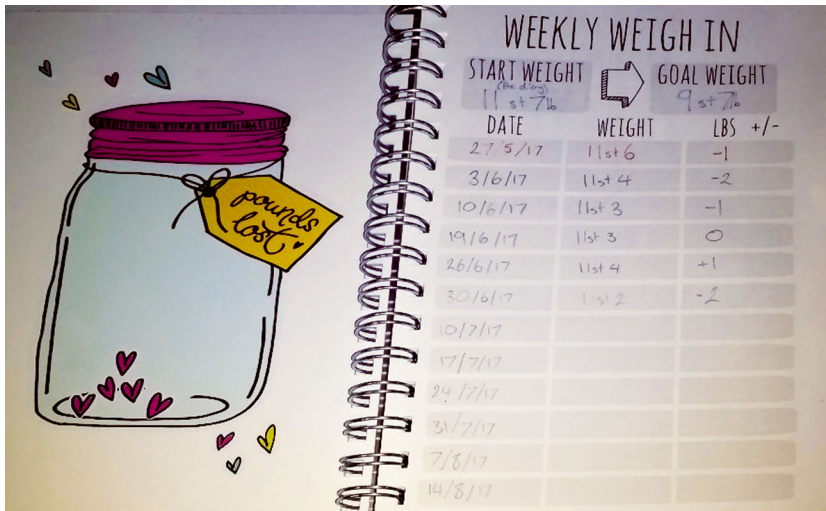 pounds
lost
WEEKLY WEIGH IN
START WEIGHT GOAL WEIGHT
11st 7lb 9st 7lb
DATE WEIGHT LBS +/-
27/5/17 11st 6 -1
3/6/17 11st 4 -2
10/6/17 11st 3 -1
19/6/17 11st 3 0
26/6/17 11st 4 +1
30/6/17 11st 2 -2
10/7/17
17/7/17
24/7/17
31/7/17
7/8/17
14/8/17